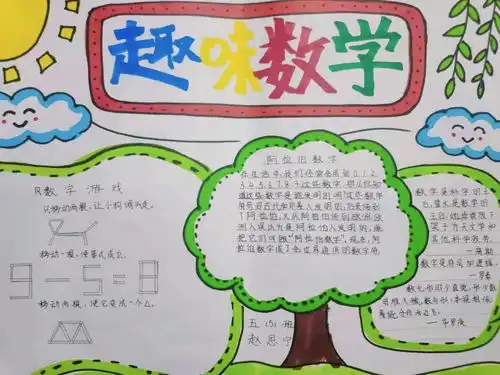 趣味数学
数学游戏
只移动两根,让小狗调头走。
移动一根,使等式成立。
9-5=8
移动两根,使它变成一个△。
阿拉伯数字
在生活中,我们经常会用到0、1、2、
3、4、5、6、7、8、9这些数字。那么你知
道这些数字是谁发明的吗?这些数
字是古代印度人发明的,后来传到
了阿拉伯,又从阿拉伯传到欧洲,欧
洲人误以为是阿拉伯人发明的,就
把它们叫做“阿拉伯数字”。现在,阿
拉伯数字成了全世界通用的数字。
五(5)班
赵思宁
数学是科学的王
后,算术是数学的
王后。她常常放下
架子为天文学和
其他科学效劳。
—高斯
数学是符号加逻辑。
—罗素
数无形时少直觉,形少数
时难入微,数与形,本是相倚
焉能分作两边飞。
—华罗庚